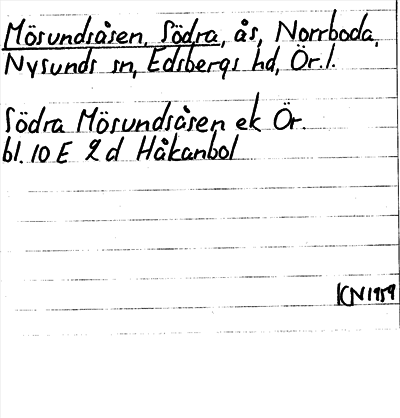 Mösundsåsen, Södra, ås, Norrboda,
Nysunds sn, Edsbergs hd, Ör.l.
Södra Mösundsåsen ek Ör.
bl. 10 E 2 d Håkanbol
KN 1959